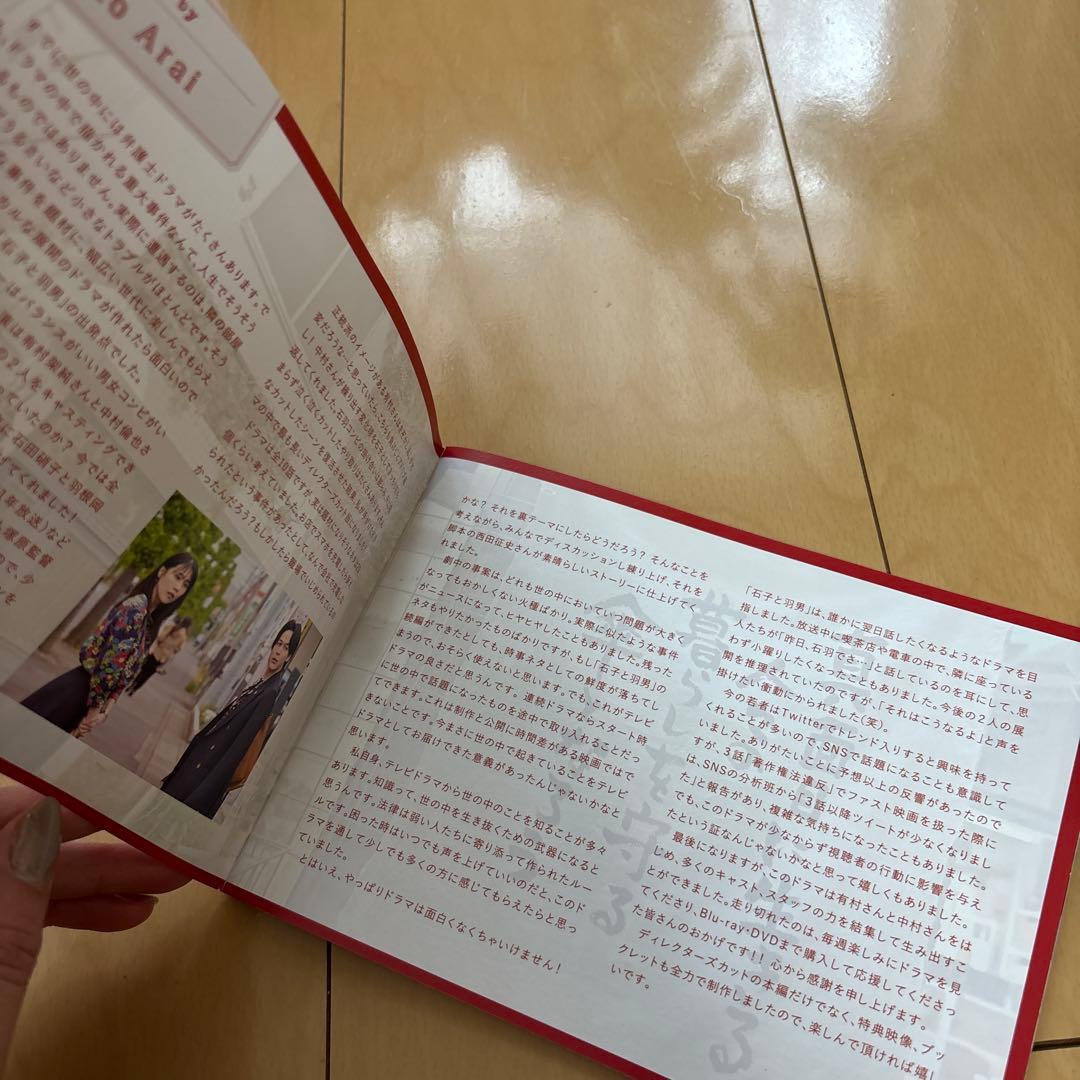 by
o Arai
すでに世の中には弁護士ドラマがたくさんあります。で
ドラマの中で描かれる重大事件なんて、人生でそうそう
るものではありません。実際に遭遇するのは、隣の部屋
うるさいなど小さなトラブルがほとんどです。そう
な事件を題材に、幅広い世代に楽しんでもらえ
カルな展開のドラマが作れたら面白いので
石子と羽男」の出発点でした。
ーはバランスがいい男女コンビがい
は有村架純さんと中村倫也さ
の2人をキャスティングでき
っていたのか?今では全
石田硝子と羽根岡
てくれました!
年放送)など
塚原監督
ので、少
正統派のイメージがある有村さんは
変だろうな~と思っていたら、
し!中村さんが繰り出す変化球を
返してくれました。石羽コンビの掛け合いは
まらず泣く泣くカットしたやり取りは
なカットしたシーンを復活させた結果、
マの中で最も長いディレクターズカット版になりました
ドラマは全10話ですが、実は最初は
個くらい考えていました。お店でスマホを充電したら
られたという事件があったとして、なんで会社で充電し
かったんだろう?もしかしたら職場でいじめられている
かな? それを裏テーマにしたらどうだろう? そんなことを
考えながら、みんなでディスカッションし練り上げ、それを
脚本の西田征史さんが素晴らしいストーリーに仕上げてく
れました。
劇中の事案は、どれも世の中においていつ問題が大きく
なってもおかしくない火種ばかり。実際に似たような事件
がニュースになって、ヒヤヒヤしたこともありました。残った
ネタもやりたかったものばかりですが、もし「石子と羽男」の
続編ができたとしても、時事ネタとしての鮮度が落ちてし
まうので、おそらく使えないと思います。でも、これがテレビ
ドラマの良さだと思うんです。連続ドラマならスタート時
に世の中で話題になったものを途中で取り入れることだっ
てできます。これは制作と公開に時間差がある映画ではで
きないことです。今まさに世の中で起きていることをテレビ
ドラマとしてお届けできた意義があったんじゃないかなと
思います。
私自身、テレビドラマから世の中のことを知ることが多々
あります。知識って、世の中を生き抜くための武器になると
思うんです。法律は弱い人たちに寄り添って作られたルー
ルです。困った時はいつでも声を上げていいのだと、このド
ラマを通して少しでも多くの方に感じてもらえたらと思っ
ていました。
とはいえ、やっぱりドラマは面白くなくちゃいけません!
「石子と羽男」は、誰かに翌日話したくなるようなドラマを目
指しました。放送中に喫茶店や電車の中で、隣に座っている
人たちが「昨日、石羽でさ…」と話しているのを耳にして、思
わず小躍りしたくなったこともありました。今後の2人の展
開を推理されていたのですが、「それはこうなるよ」と声を
掛けたい衝動にかられました(笑)。
今の若者はTwitterでトレンド入りすると興味を持って
くれることが多いので、SNSで話題になることも意識して
いました。ありがたいことに予想以上の反響があったので
すが、3話「著作権法違反」でファスト映画を扱った際に
は、SNSの分析班から「3話以降ツイートが少なくなりまし
た」と報告があり、複雑な気持ちになったこともありました。
でも、このドラマが少なからず視聴者の行動に影響を与え
たという証なんじゃないかなと思って嬉しくもありました。
最後になりますが、このドラマは有村さんと中村さんをは
じめ、多くのキャスト、スタッフの力を結集して生み出すこ
とができました。走り切れたのは、毎週楽しみにドラマを見
てくださり、Blu-ray・DVDまで購入して応援してくださっ
た皆さんのおかげです!! 心から感謝を申し上げます。
ディレクターズカットの本編だけでなく、特典映像、ブッ
クレットも全力で制作しましたので、楽しんで頂ければ嬉し
いです。
暮らしを守る